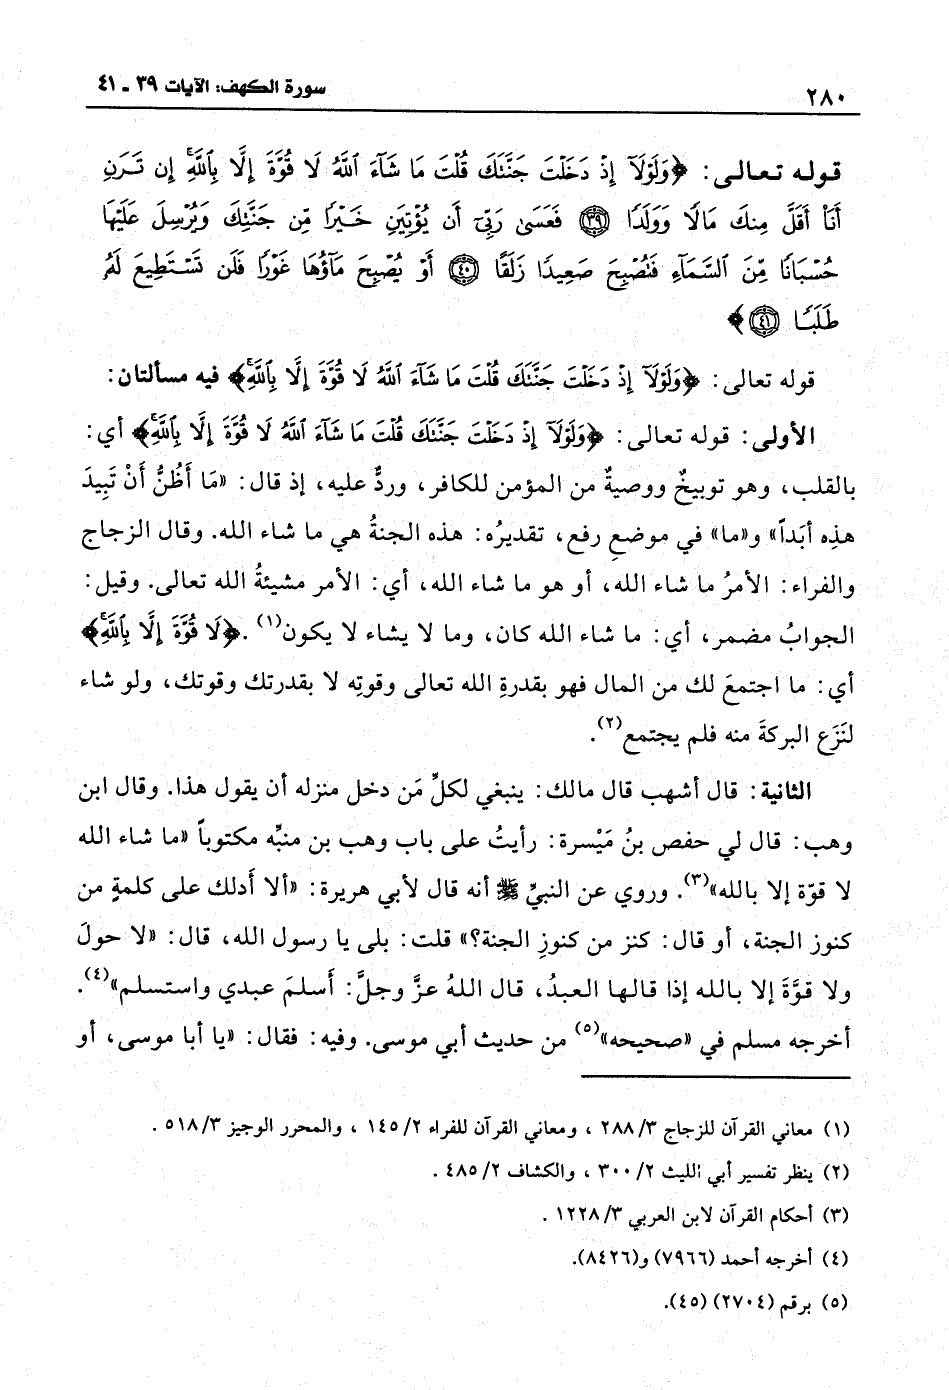 ٢٨٠ سورة الكهف: الآيات ٣٩ - ٤١
قوله تعالى: ﴿وَلَوْلَآ إِذْ دَخَلْتَ جَنَّتَكَ قُلْتَ مَا شَآءَ ٱللَّهُ لَا قُوَّةَ إِلَّا بِٱللَّهِۚ إِن تَرَنِ
أَنَا۠ أَقَلَّ مِنكَ مَالًا وَوَلَدًا ﴿٣٩﴾ فَعَسَىٰ رَبِّىٓ أَن يُؤْتِيَنِ خَيْرًا مِّن جَنَّتِكَ وَيُرْسِلَ عَلَيْهَا
حُسْبَانًا مِّنَ ٱلسَّمَآءِ فَتُصْبِحَ صَعِيدًا زَلَقًا ﴿٤٠﴾ أَوْ يُصْبِحَ مَآؤُهَا غَوْرًا فَلَن تَسْتَطِيعَ لَهُۥ
طَلَبًا ﴿٤١﴾﴾
قوله تعالى: ﴿وَلَوْلَآ إِذْ دَخَلْتَ جَنَّتَكَ قُلْتَ مَا شَآءَ ٱللَّهُ لَا قُوَّةَ إِلَّا بِٱللَّهِۚ﴾ فيه مسألتان:
الأولى: قوله تعالى: ﴿وَلَوْلَآ إِذْ دَخَلْتَ جَنَّتَكَ قُلْتَ مَا شَآءَ ٱللَّهُ لَا قُوَّةَ إِلَّا بِٱللَّهِۚ﴾ أي:
بالقلب، وهو توبيخٌ ووصيةٌ من المؤمن للكافر، وردٌّ عليه، إذ قال: «مَا أَظُنُّ أَنْ تَبِيدَ
هذِه أبَداً» و«ما» في موضعِ رفع، تقديرُه: هذه الجنةُ هي ما شاء الله. وقال الزجاج
والفراء: الأمرُ ما شاء الله، أو هو ما شاء الله، أي: الأمر مشيئةُ الله تعالى. وقيل:
الجوابُ مضمر، أي: ما شاء الله كان، وما لا يشاء لا يكون(١). ﴿لَا قُوَّةَ إِلَّا بِٱللَّهِۚ﴾
أي: ما اجتمعَ لك من المال فهو بقدرةِ الله تعالى وقوتِه لا بقدرتك وقوتك، ولو شاء
لنَزَع البركةَ منه فلم يجتمع(٢).
الثانية: قال أشهب قال مالك: ينبغي لكلِّ مَن دخل منزله أن يقول هذا. وقال ابن
وهب: قال لي حفص بنُ مَيْسرة: رأيتُ على باب وهب بن منبِّه مكتوباً «ما شاء الله
لا قوّة إلا بالله»(٣). وروي عن النبيِّ ﷺ أنه قال لأبي هريرة: «ألا أَدلك على كلمةٍ من
كنوز الجنة، أو قال: كنز من كنوزِ الجنة؟» قلت: بلى يا رسول الله، قال: «لا حولَ
ولا قوَّةَ إلا بالله إذا قالها العبدُ، قال اللهُ عزَّ وجلَّ: أَسلمَ عبدي واستسلم»(٤).
أخرجه مسلم في «صحيحه»(٥) من حديث أبي موسى. وفيه: فقال: «يا أبا موسى، أو
(١) معاني القرآن للزجاج ٣/ ٢٨٨ ، ومعاني القرآن للفراء ٢/ ١٤٥ ، والمحرر الوجيز ٣/ ٥١٨ .
(٢) ينظر تفسير أبي الليث ٢/ ٣٠٠ ، والكشاف ٢/ ٤٨٥ .
(٣) أحكام القرآن لابن العربي ٣/ ١٢٢٨ .
(٤) أخرجه أحمد (٧٩٦٦) و(٨٤٢٦).
(٥) برقم (٢٧٠٤) (٤٥).